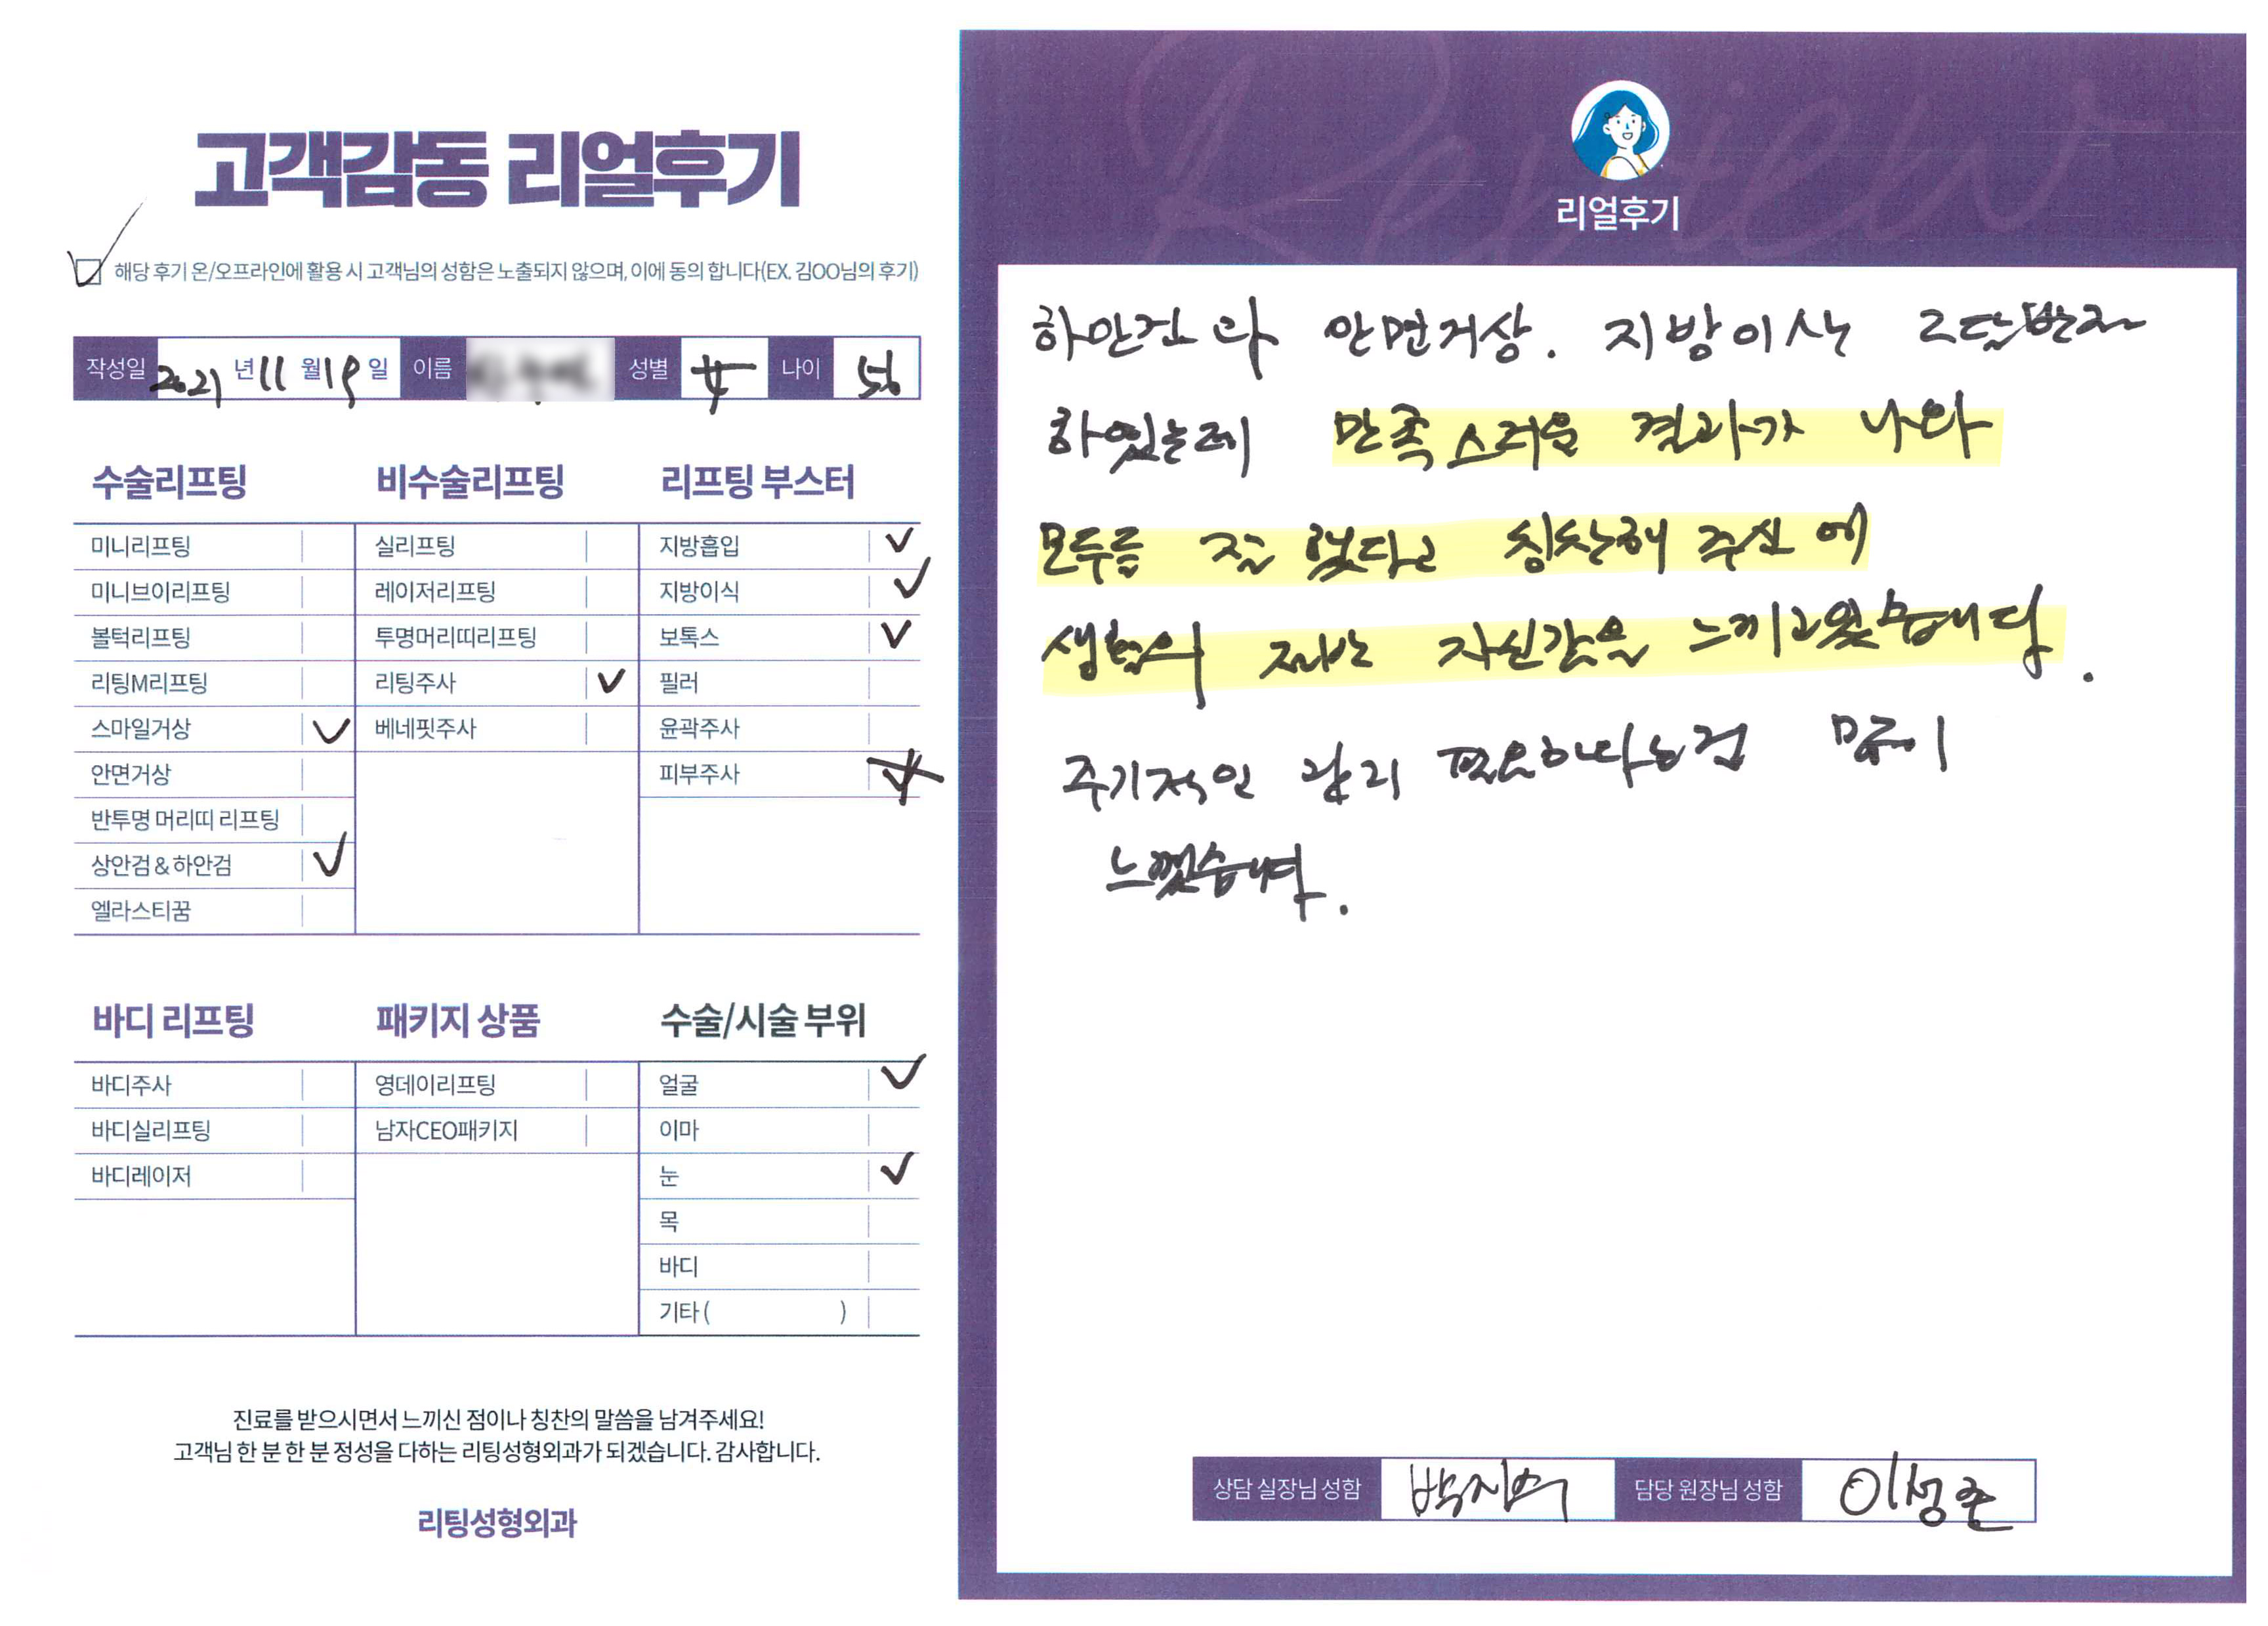 고객감동 리얼후기
해당 후기 온/오프라인에 활용 시 고객님의 성함은 노출되지 않으며, 이에 동의 합니다(EX. 김OO님의 후기)
작성일 2021 년 11 월 19 일 이름 성별 女 나이 56
수술리프팅
미니리프팅
미니브이리프팅
볼턱리프팅
리팅M리프팅
스마일거상
안면거상
반투명 머리띠 리프팅
상안검 & 하안검
엘라스티꿈
비수술리프팅
실리프팅
레이저리프팅
투명머리띠리프팅
리팅주사
베네핏주사
리프팅 부스터
지방흡입
지방이식
보톡스
필러
윤곽주사
피부주사
바디 리프팅
바디주사
바디실리프팅
바디레이저
패키지 상품
영데이리프팅
남자CEO패키지
수술/시술 부위
얼굴
이마
눈
목
바디
기타 ( )
진료를 받으시면서 느끼신 점이나 칭찬의 말씀을 남겨주세요!
고객님 한 분 한 분 정성을 다하는 리팅성형외과가 되겠습니다. 감사합니다.
리팅성형외과
Review
리얼후기
하안검과 안면거상. 지방이식
하였는데 만족스러운 결과가 나와
모두를 잘 했다고 칭찬해 주신 에
생협의 자신감을 느끼고있습니다.
주기적인 관리 필요하다는걸 많이
느꼈습니다.
상담 실장님 성함 담당 원장님 성함 이성준